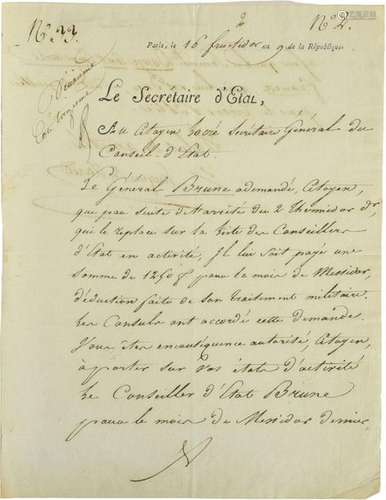 N.º 33. N.º 2.
Paris, le 16 fructidor an 9 de la République
Le Secrétaire d'Etat,
Au Citoyen Locré Secrétaire Général du
Conseil-d'Etat.
Le Général Brune a demandé, Citoyen,
que par suite de l'arrêté du 2 thermidor dr,
qui le replace sur la liste des Conseillers
d'Etat en activité, Il lui soit payé une
somme de 1250 f pour le mois de Messidor,
déduction faite de son traitement militaire.
Les Consuls ont accordé cette demande.
Vous êtes en conséquence autorisé, Citoyen,
à porter sur vos états d'activité
le Conseiller d'Etat Brune
pour le mois de Messidor dernier.